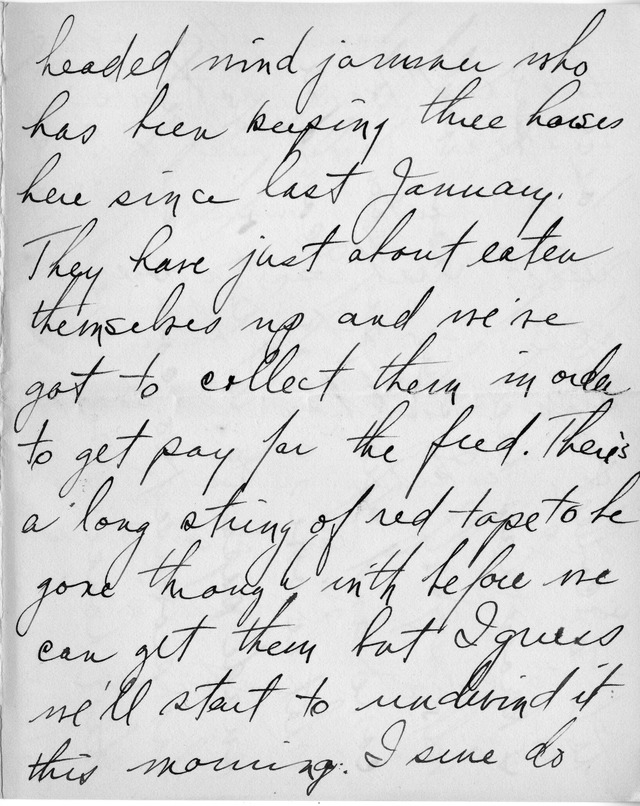 headed wind jammer who
has been keeping three horses
here since last January.
They have just about eaten
themselves up and we've
got to collect them in order
to get pay for the feed. There's
a long string of red tape to be
gone through with before we
can get them but I guess
we'll start to undwind it
this morning. I sure do